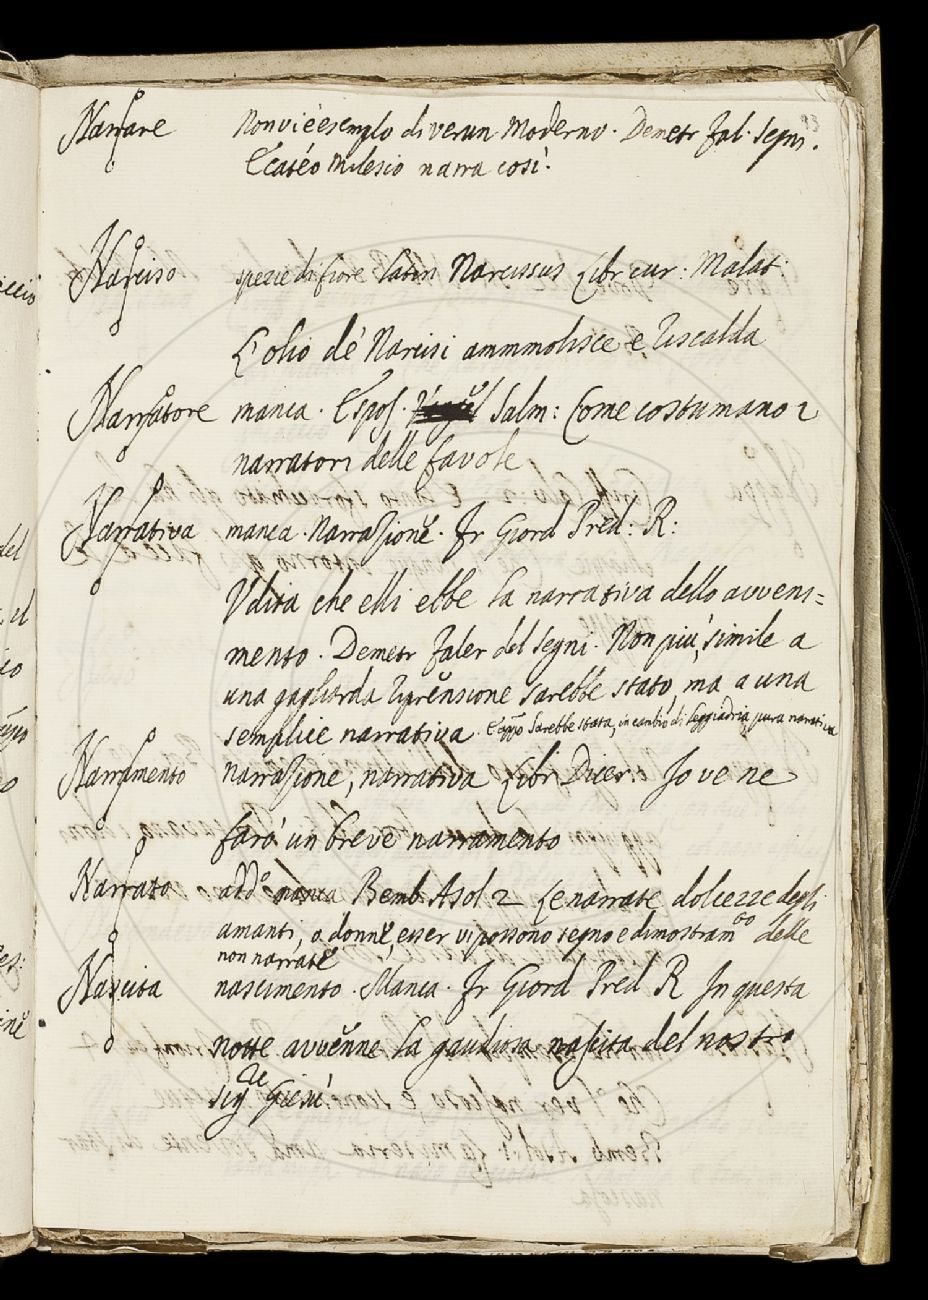 93
Narrare Non vi è esemplo di verun Moderno. Demetr fal. Segni.
Ecatéo Milesio narra così.
Narciso spezie di fiore latin Narcissus Libr cur: Malat.
L'olio de' Narcisi ammmolisce e riscalda
Narratore manca. Espos. Salm: Come costumano i
narratori delle favole
Narrativa manca. Narrazione. Fr Giord Pred: R:
Udita che elli ebbe la narrativa dello avveni=
mento. Demetr faler del Segni. Non più simile a
una gagliarda riprensione sarebbe stato, ma a una
semplice narrativa. E app̃o Sarebbe stata, in cambio di leggiadria, pura narrativa
Narramento Narrazione, narrativa Libr Dicer: Io ve ne
farò un breve narramento
Narrato add.º manca Bemb Asol 2 Le narrate dolcezze degli
amanti, o donne, esser vi possono segno e dimostramto delle
non narrate
Nascita nascimento. Manca. Fr Giord Pred R In questa
notte avvenne la gaudiosa nascita del nostro
Sig.re Giesù